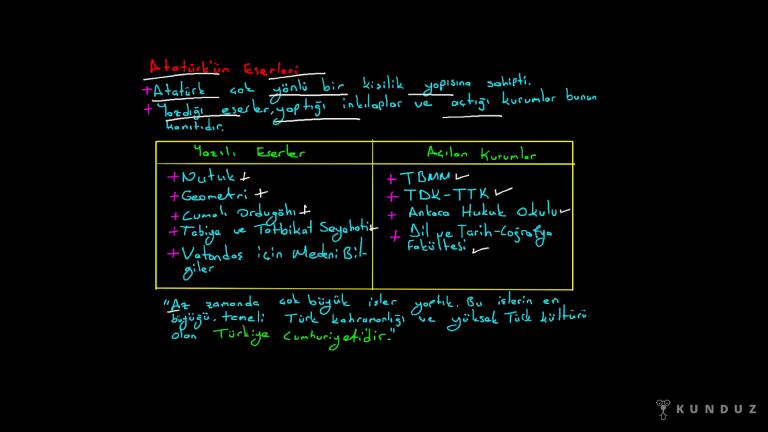 Atatürk'ün Eserleri
+ Atatürk çok yönlü bir kişilik yapısına sahipti.
+ Yazdığı eserler, yaptığı inkılaplar ve açtığı kurumlar bunun
kanıtıdır.
Yazılı Eserler
+ Nutuk
+ Geometri
+ Cumalı Ordugâhı
+ Tabiya ve Tatbikat Seyahati
+ Vatandaş için Medeni Bil-
giler
Açılan Kurumlar
+ TBMM
+ TDK-TTK
+ Ankara Hukuk Okulu
+ Dil ve Tarih-Coğrafya
Fakültesi
"Az zamanda çok büyük işler yaptık. Bu işlerin en
büyüğü, temeli Türk kahramanlığı ve yüksek Türk kültürü
olan Türkiye Cumhuriyetidir."
KUNDUZ